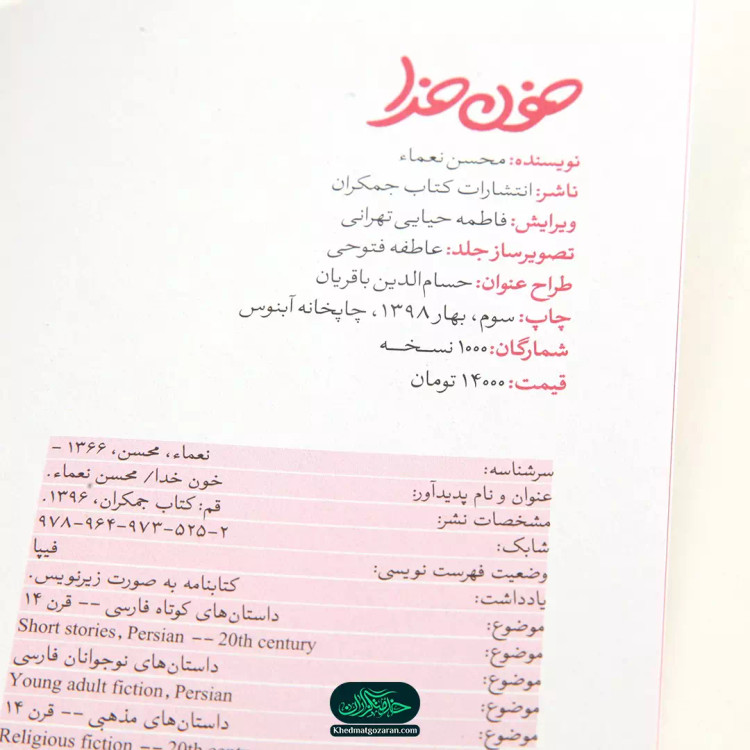 خون خدا
نویسنده: محسن نعماء
ناشر: انتشارات کتاب جمکران
ویرایش: فاطمه حیایی تهرانی
تصویرساز جلد: عاطفه فتوحی
طراح عنوان: حسام‌الدین باقریان
چاپ: سوم، بهار ۱۳۹۸، چاپخانه آبنوس
شمارگان: ۱۰۰۰ نسـخـه
قیمت: ۱۴۰۰۰ تومان
سرشناسه: نعماء، محسن، ۱۳۶۶ -
عنوان و نام پدیدآور: خون خدا/ محسن نعماء.
مشخصات نشر: قم: کتاب جمکران، ۱۳۹۶.
شابک: ۹۷۸-۹۶۴-۹۷۳-۵۲۵-۲
وضعیت فهرست نویسی: فیپا
یادداشت: کتابنامه به صورت زیرنویس.
موضوع: داستان‌های کوتاه فارسی -- قرن ۱۴
موضوع: Short stories, Persian -- 20th century
موضوع: داستان‌های نوجوانان فارسی
موضوع: Young adult fiction, Persian
موضوع: داستان‌های مذهبی -- قرن ۱۴
Religious fiction -- 20th century
خدمتگزاران
Khedmatgozaran.com